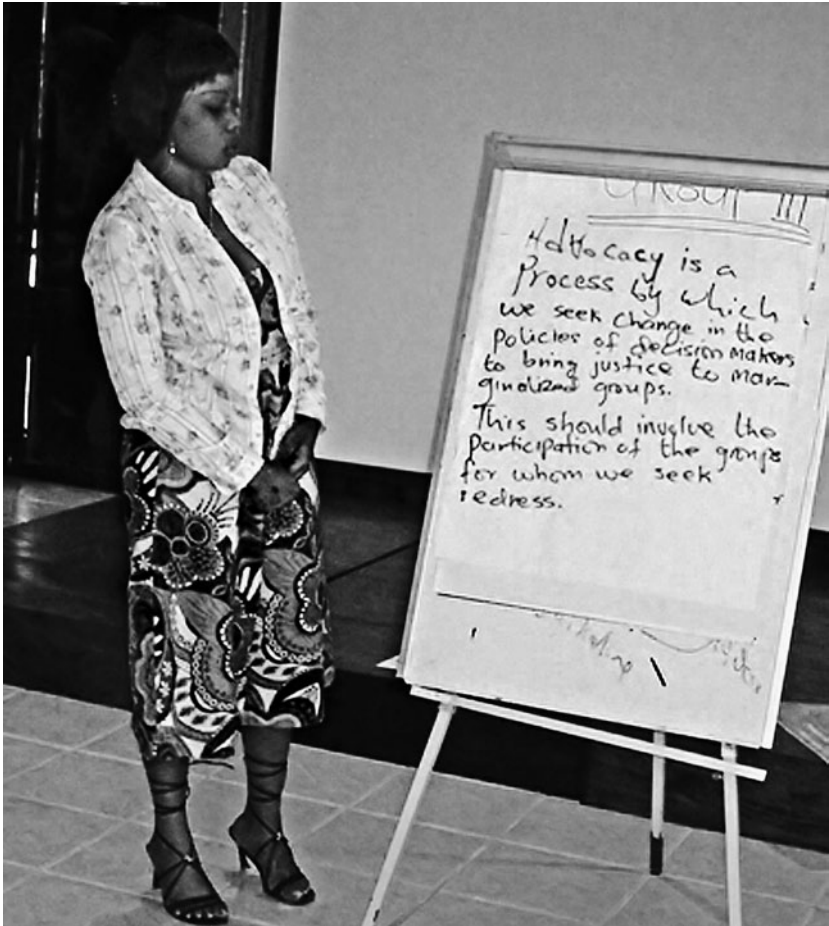 GROUP III
Advocacy is a
Process by which
we seek change in the
policies of decision makers
to bring justice to mar-
ginalized groups.
This should involve the
participation of the groups
for whom we seek
redress.